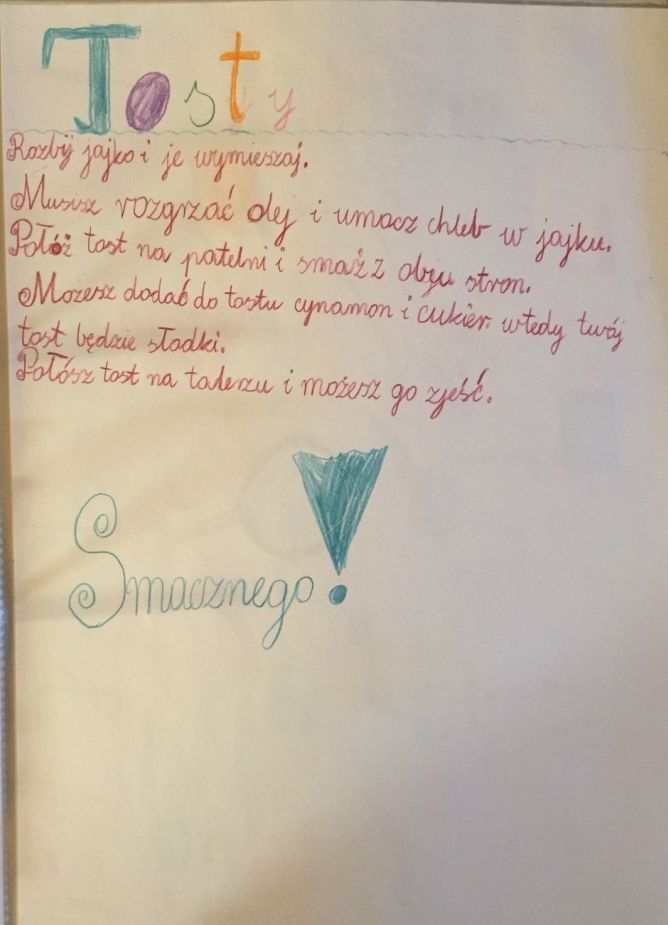 Tosty
Rozbij jajko i je wymieszaj.
Musisz rozgrzać olej i umocz chleb w jajku.
Połóż tost na patelni i smaż z obu stron.
Możesz dodać do tostu cynamon i cukier wtedy twój
tost będzie słodki.
Połósz tost na talerzu i możesz go zjeść.
Smacznego!